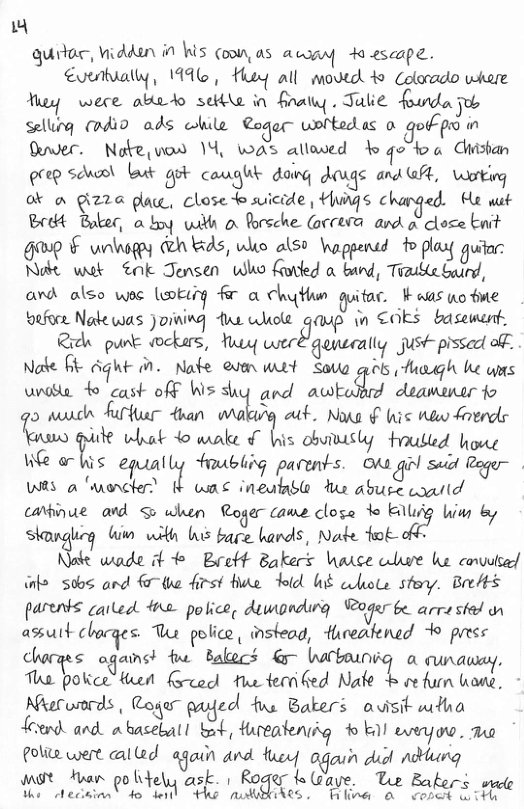 14
guitar, hidden in his room, as a way to escape.
Eventually, 1996, they all moved to Colorado where
they were able to settle in finally. Julie found a job
selling radio ads while Roger worked as a golf pro in
Denver. Nate, now 14, was allowed to go to a Christian
prep school but got caught doing drugs and left. Working
at a pizza place, close to suicide, things changed. He met
Brett Baker, a boy with a Porsche Carrera and a close knit
group of unhappy rich kids, who also happened to play guitar.
Nate met Erik Jensen who fronted a band, Trouble baurd,
and also was looking for a rhythm guitar. It was no time
before Nate was joining the whole group in Erik's basement.
Rich punk rockers, they were generally just pissed off.
Nate fit right in. Nate even met some girls, though he was
unable to cast off his shy and awkward deamener to
go much further than making out. None of his new friends
knew quite what to make of his obviously troubled home
life or his equally troubling parents. One girl said Roger
was a 'monster.' It was inevitable the abuse would
continue and so when Roger came close to killing him by
strangling him with his bare hands, Nate took off.
Nate made it to Brett Baker's house where he convulsed
into sobs and for the first time told his whole story. Brett's
parents called the police, demanding Roger be arrested on
assult charges. The police, instead, threatened to press
charges against the Baker's for harbouring a runaway.
The police then forced the terrified Nate to return home.
Afterwards, Roger payed the Baker's a visit with a
friend and a baseball bat, threatening to kill everyone. The
police were called again and they again did nothing
more than politely ask Roger to leave. The Baker's made
the decision to tell the authorities. Filing a report with